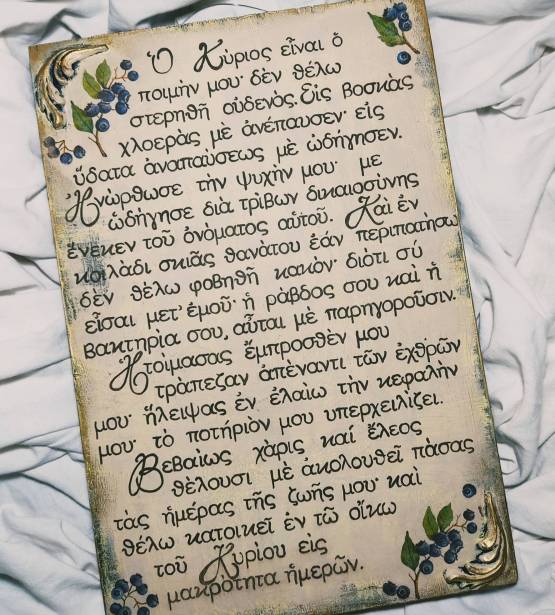 Ὁ Κύριος εἶναι ὁ
ποιμὴν μου· δὲν θέλω
στερηθῆ οὐδενός. Εἰς βοσκὰς
χλοερὰς μὲ ἀνέπαυσεν· εἰς
ὕδατα ἀναπαύσεως μὲ ὡδήγησεν.
Ἠνώρθωσε τὴν ψυχὴν μου· με
ὡδήγησε διὰ τρίβων δικαιοσύνης
ἕνεκεν τοῦ ὀνόματος αὑτοῦ. Καὶ ἐν
κοιλάδι σκιᾶς θανάτου ἐάν περιπατήσω
δὲν θέλω φοβηθῆ κακόν· διότι σύ
εἶσαι μετ' ἐμοῦ· ἡ ράβδος σου καὶ ἡ
βακτηρία σου, αὗται μὲ παρηγοροῦσιν.
Ἡτοίμασας ἔμπροσθέν μου
τράπεζαν ἀπέναντι τῶν ἐχθρῶν
μου· ἤλειψας ἐν ἐλαίω τὴν κεφαλήν
μου· τὸ ποτήριὸν μου υπερχειλίζει.
Βεβαίως χάρις καί ἔλεος
θέλουσι μὲ ἀκολουθεῖ πάσας
τὰς ἡμέρας τῆς ζωῆς μου· καὶ
θέλω κατοικεῖ ἐν τῶ οἴκω
τοῦ Κυρίου εἰς
μακρότητα ἡμερῶν.